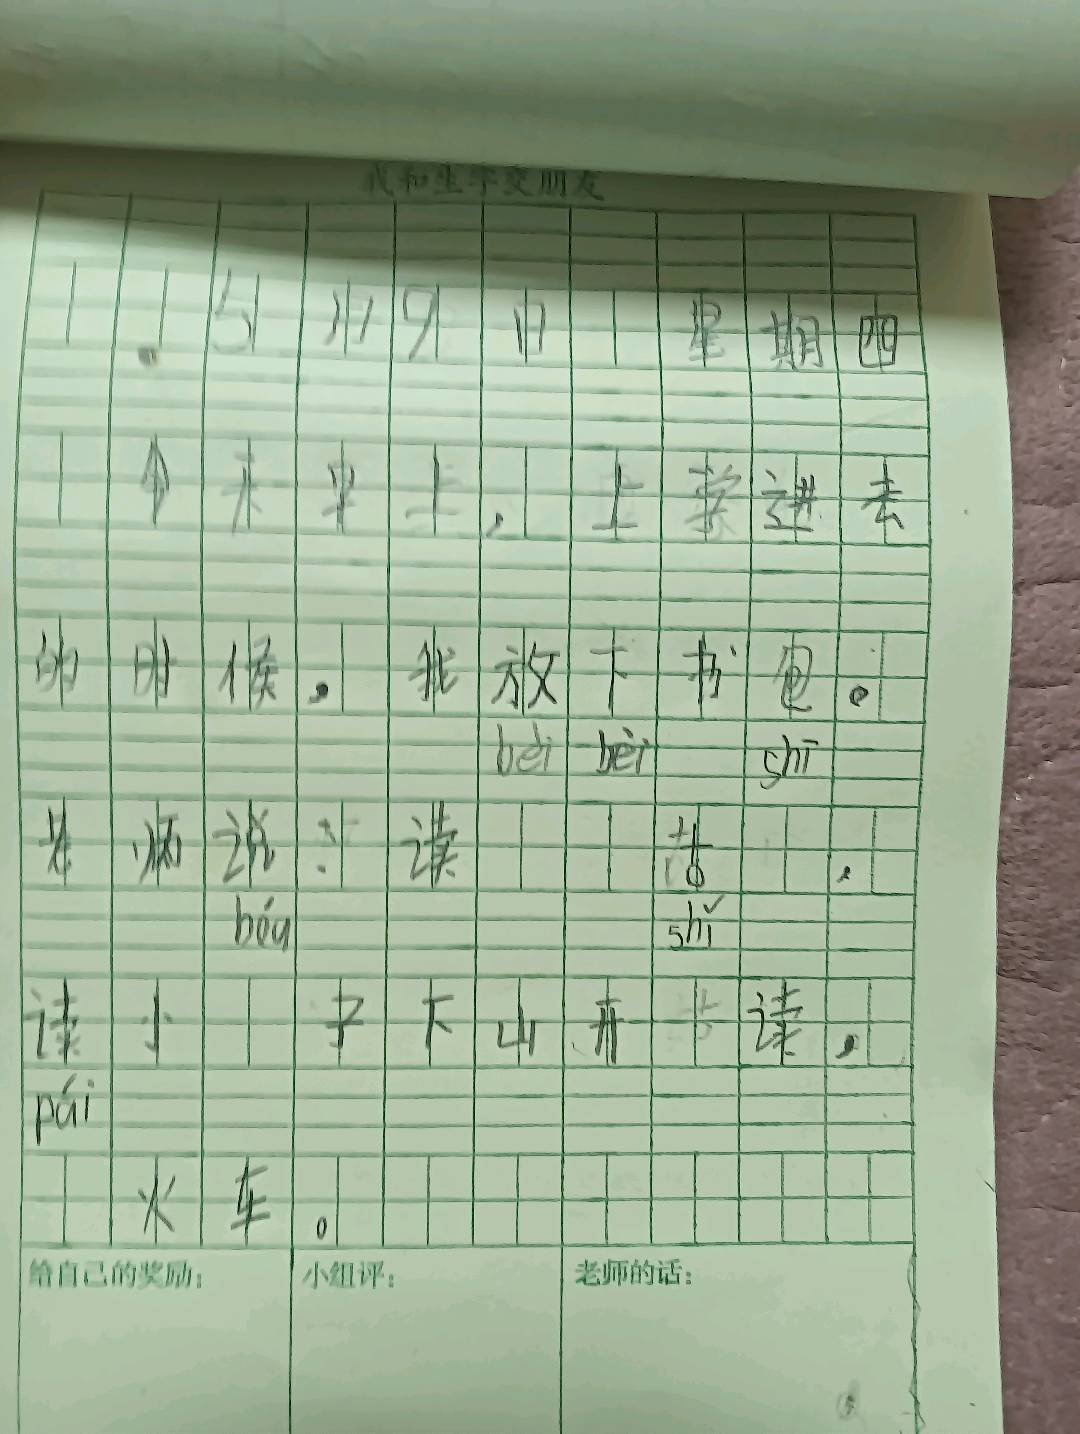 我和生字交朋友
5月9日 星期四
今天早上,上学进去
的时候,我放下书包。
bèi bèi shī
老师说:读 古 ,
bóu shǐ
读小 子下山开始读,
pái
火车。
给自己的奖励: 小组评: 老师的话: